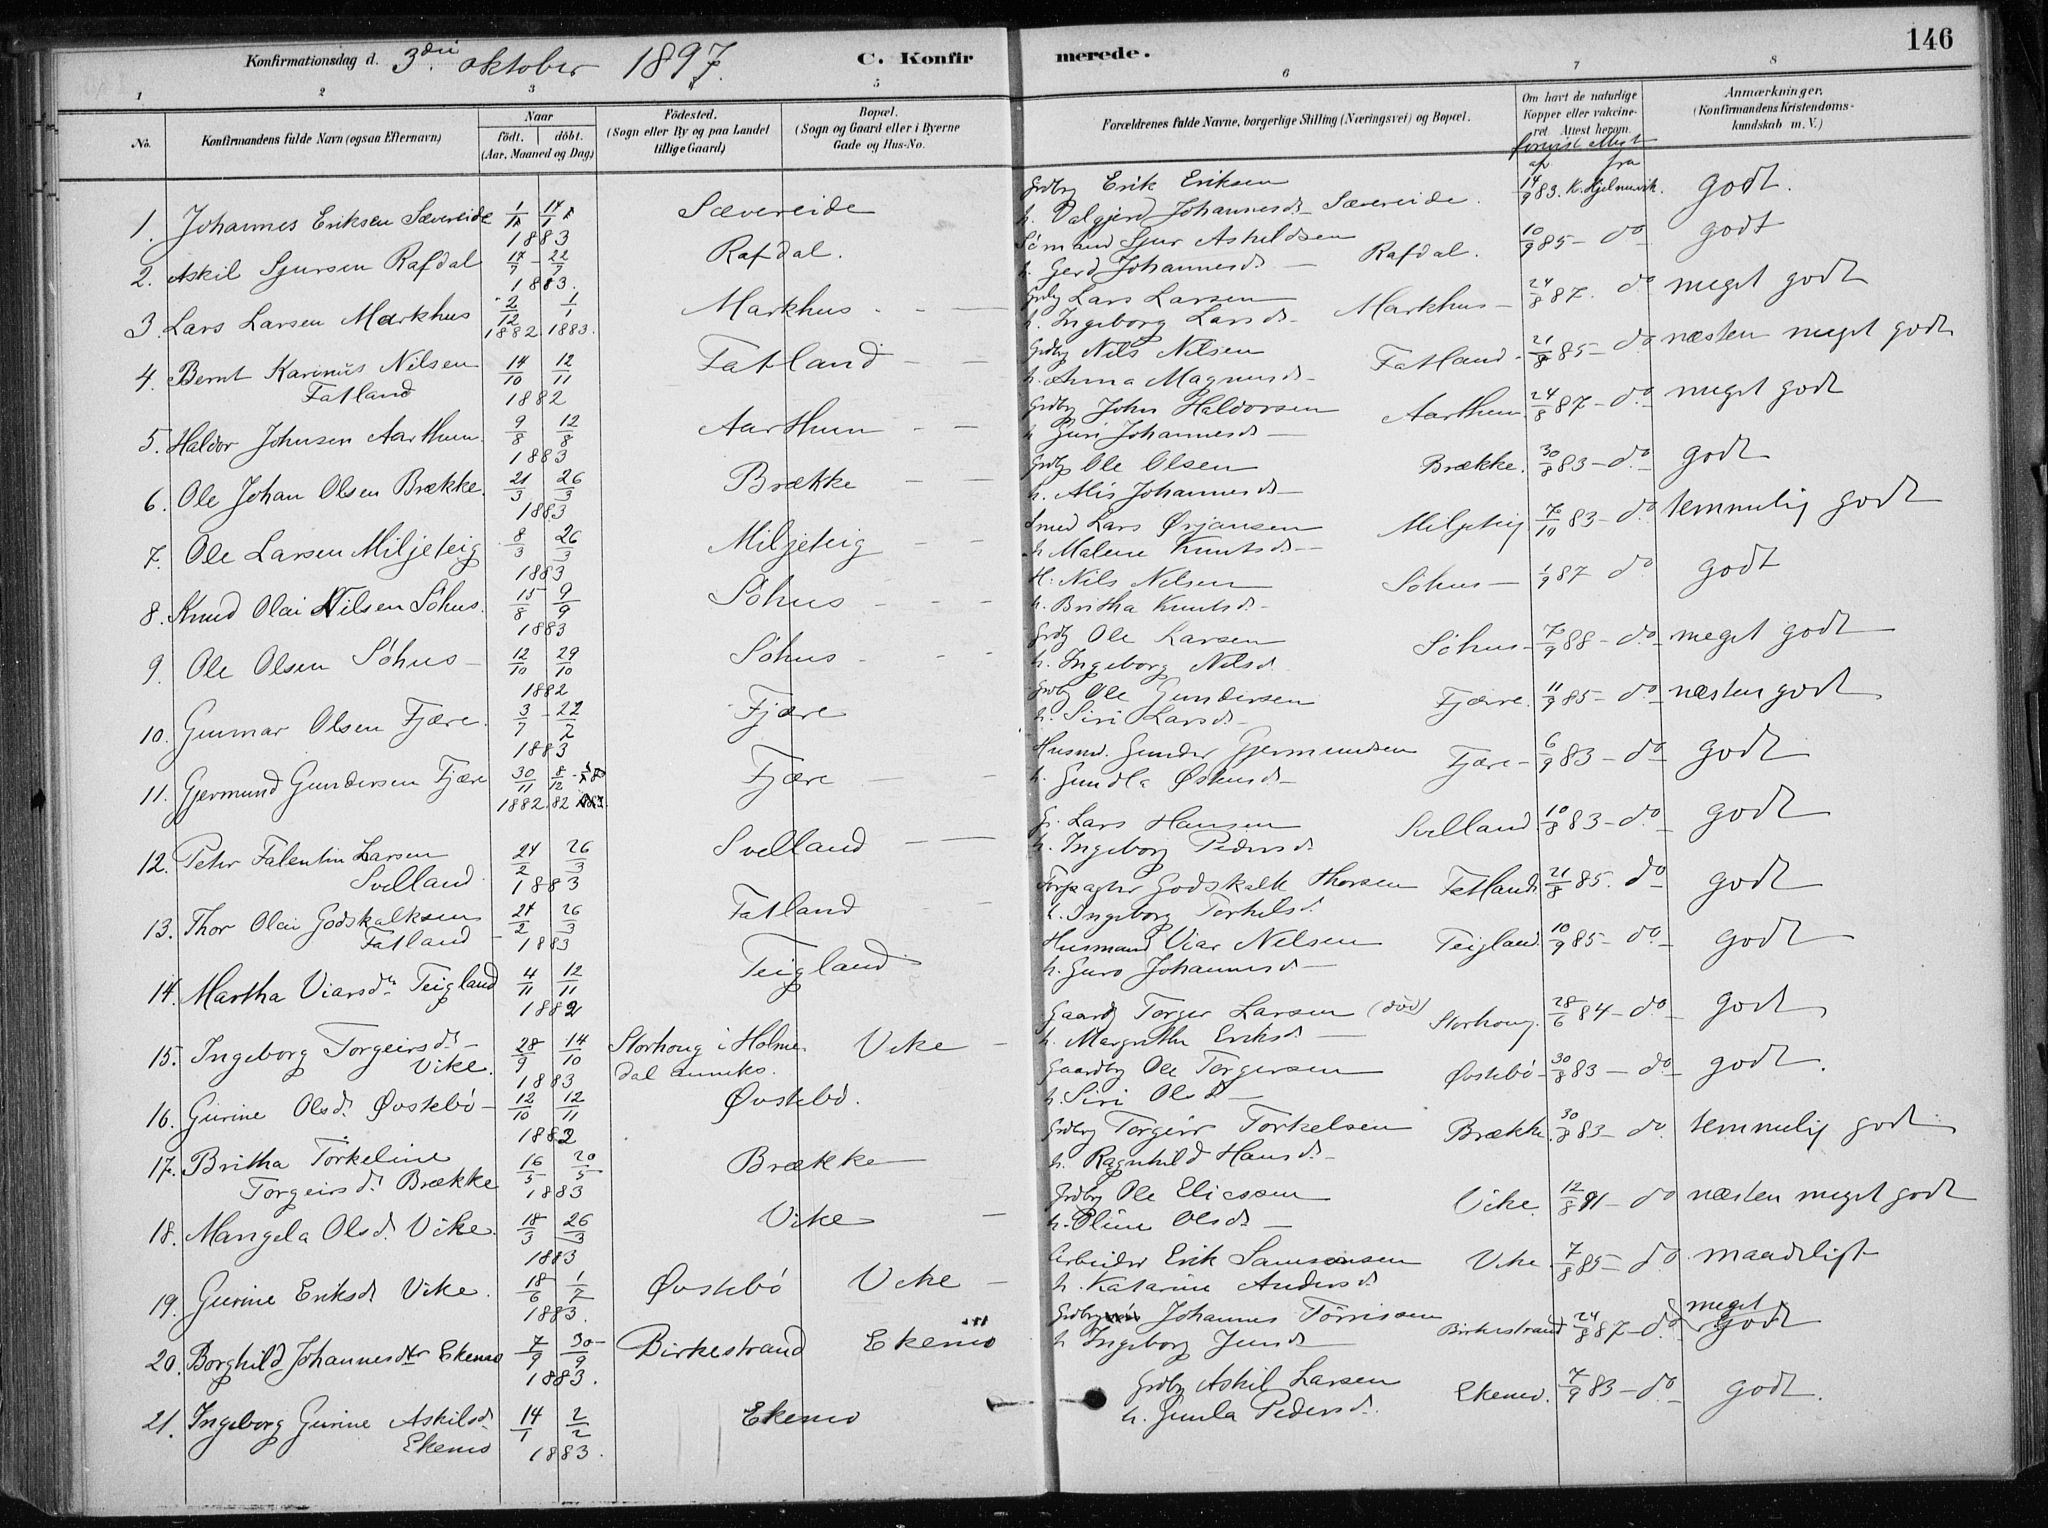 Konfirmationsdag d. 3die oktober 1897. C. Konfirmerede. 146
1 2 3 4 5 6 7 8
No. Konfirmandens fulde Navn (ogsaa Efternavn)
Naar født. døbt. (Aar, Maaned og Dag)
Fødested. (Sogn eller By og paa Landet tillige Gaard)
Bopæl. (Sogn og Gaard eller i Byerne Gade og Hus-No.
Forældrenes fulde Navne, borgerlige Stilling (Næringsvei) og Bopæl.
Om havt de naturlige Kopper eller vakcineret. Attest herom.
Anmærkninger. (Konfirmandens Kristendomskundskab m. V.)
af fra
1. Johannes Eriksen Sævereide 1883 Sævereide Grdbr Erik Eriksen Sævereide. 14/9 83. K. Hjelmervik. godt.
h. Valgjerd Johannesd.
2. Askil Sjursen Rafdal 17/7 - 22/7 1883. Rafdal. Sømand Sjur Askildsen Rafdal. 10/9 85 - do godt
h. Gerd Johannesd. -
3. Lars Larsen Markhus 2/12 1882 1/1 1883. Markhus - - Grdbr Lars Larsen Markhus - 24/8 87. do meget godt
h. Ingeborg Larsd. -
4. Bernt Karinus Nilsen Fatland 14/10 12/11 1882 Fatland - - Grdbr Nils Nilsen Fatland - 21/8 85 - do næsten meget godt
h. Anna Magnusd. -
5. Haldor Johnsen Aarthun. 9/8 12/8 1883 Aarthun - - Grdbr John Haldorsen Aarthun 24/8 87 - do. meget godt
h. Guri Johannesd. -
6. Ole Johan Olsen Brække. 21/3 26/3 1883 Brække - - Grdbr Ole Olsen Brække. 30/8 83 - do. godt
h. Alis Johannesd. -
7. Ole Larsen Miljeteig 8/3 26/3 1883 Miljeteig - - Smed Lars Ørjansen Miljeteig 7/10 83 - do. temmelig godt
h. Malene Knutsd. -
8. Knud Olai Nilsen Söhus. 15/8 9/9 1883 Söhus - - - H. Nils Nilsen Söhus - 1/9 87 do. godt
h. Britha Knutsd. -
9. Ole Olsen Söhus - 12/10 29/10 1882 Söhus - - - Grdbr Ole Larsen Söhus - 7/9 88 - do. meget godt
h. Ingeborg Nilsd.
10. Gunnar Olsen Fjære. 3/7 - 22/7 1883 Fjære Grdbr Ole Gundersen Fjære. 11/9 85 - do næsten godt
h. Siri Larsd. -
11. Gjermund Gundersen Fjære 30/11 1882 8/12 82 Fjære - Husm. Gunder Gjermundsen Fjære - 6/9 83 - do godt
h. Gundla Østensd. -
12. Peter Falentin Larsen Svelland 24/2 26/3 1883 Svelland - - G. Lars Hansen Svelland 10/8 83 - do. godt
h. Ingeborg Pedersd.
13. Thor Olai Godskalksen Fatland - 24/2 26/3 1883 Fatland - - Forpagter Godskalk Thorsen Fatland. 21/8 85. do godt
h. Ingeborg Torkilsd.
14. Martha Viarsdtr Teigland 4/11 12/11 1882 Teigland Husmand Viar Nilsen Teigland. 10/9 85 - do. godt
h. Guro Johannesd. -
15. Ingeborg Torgeirsd. - Vike. 28/9 14/10 1883 Storhoug i Holmedal anneks. Vike - Gaardbr Torger Larsen (död) Storhoug. 28/6 84 - do. godt
h. Margretha Eriksd. -
16. Gurine Olsd. Øvstebö - 12/10 12/11 1882 Øvstebö. Gaardbr Ole Torgersen Øvstebö - 30/8 83 - do - godt.
h. Siri Olsd -
17. Britha Törkeline Torgeirsd. Brække 16/5 20/5 1883 Brække - Grdbr Torgeir Torkelsen Brække. 30/8 83 - do. temmelig godt
h. Ragnhild Hansd. -
18. Mangela Olsd. Vike. 18/3 26/3 1883 Vike - Grdbr Ole Eliassen Vike. 12/8 91 - do næsten meget godt
h. Oline Olsd. -
19. Gurine Eriksd. Vike. 18/6 1/7 1883. Øvstebö Vike - Arbeider Erik Samsonsen Vike. 7/8 85 - do maadeligt
h. Katarine Andersd.
20. Borghild Johannesdtr Ekemo 7/9 30/9 1883. Birkestrand Ekemo Grdbr Johannes Törrissen Birkestrand 24/8 87 - do. meget godt
h. Ingeborg Jensd
21. Ingeborg Gurine Askilsd. Ekemo 14/1 2/2 1883. Ekemo Grdbr Askil Larsen Ekemo. 7/9 83 - do. godt.
h. Gunla Pedersd.